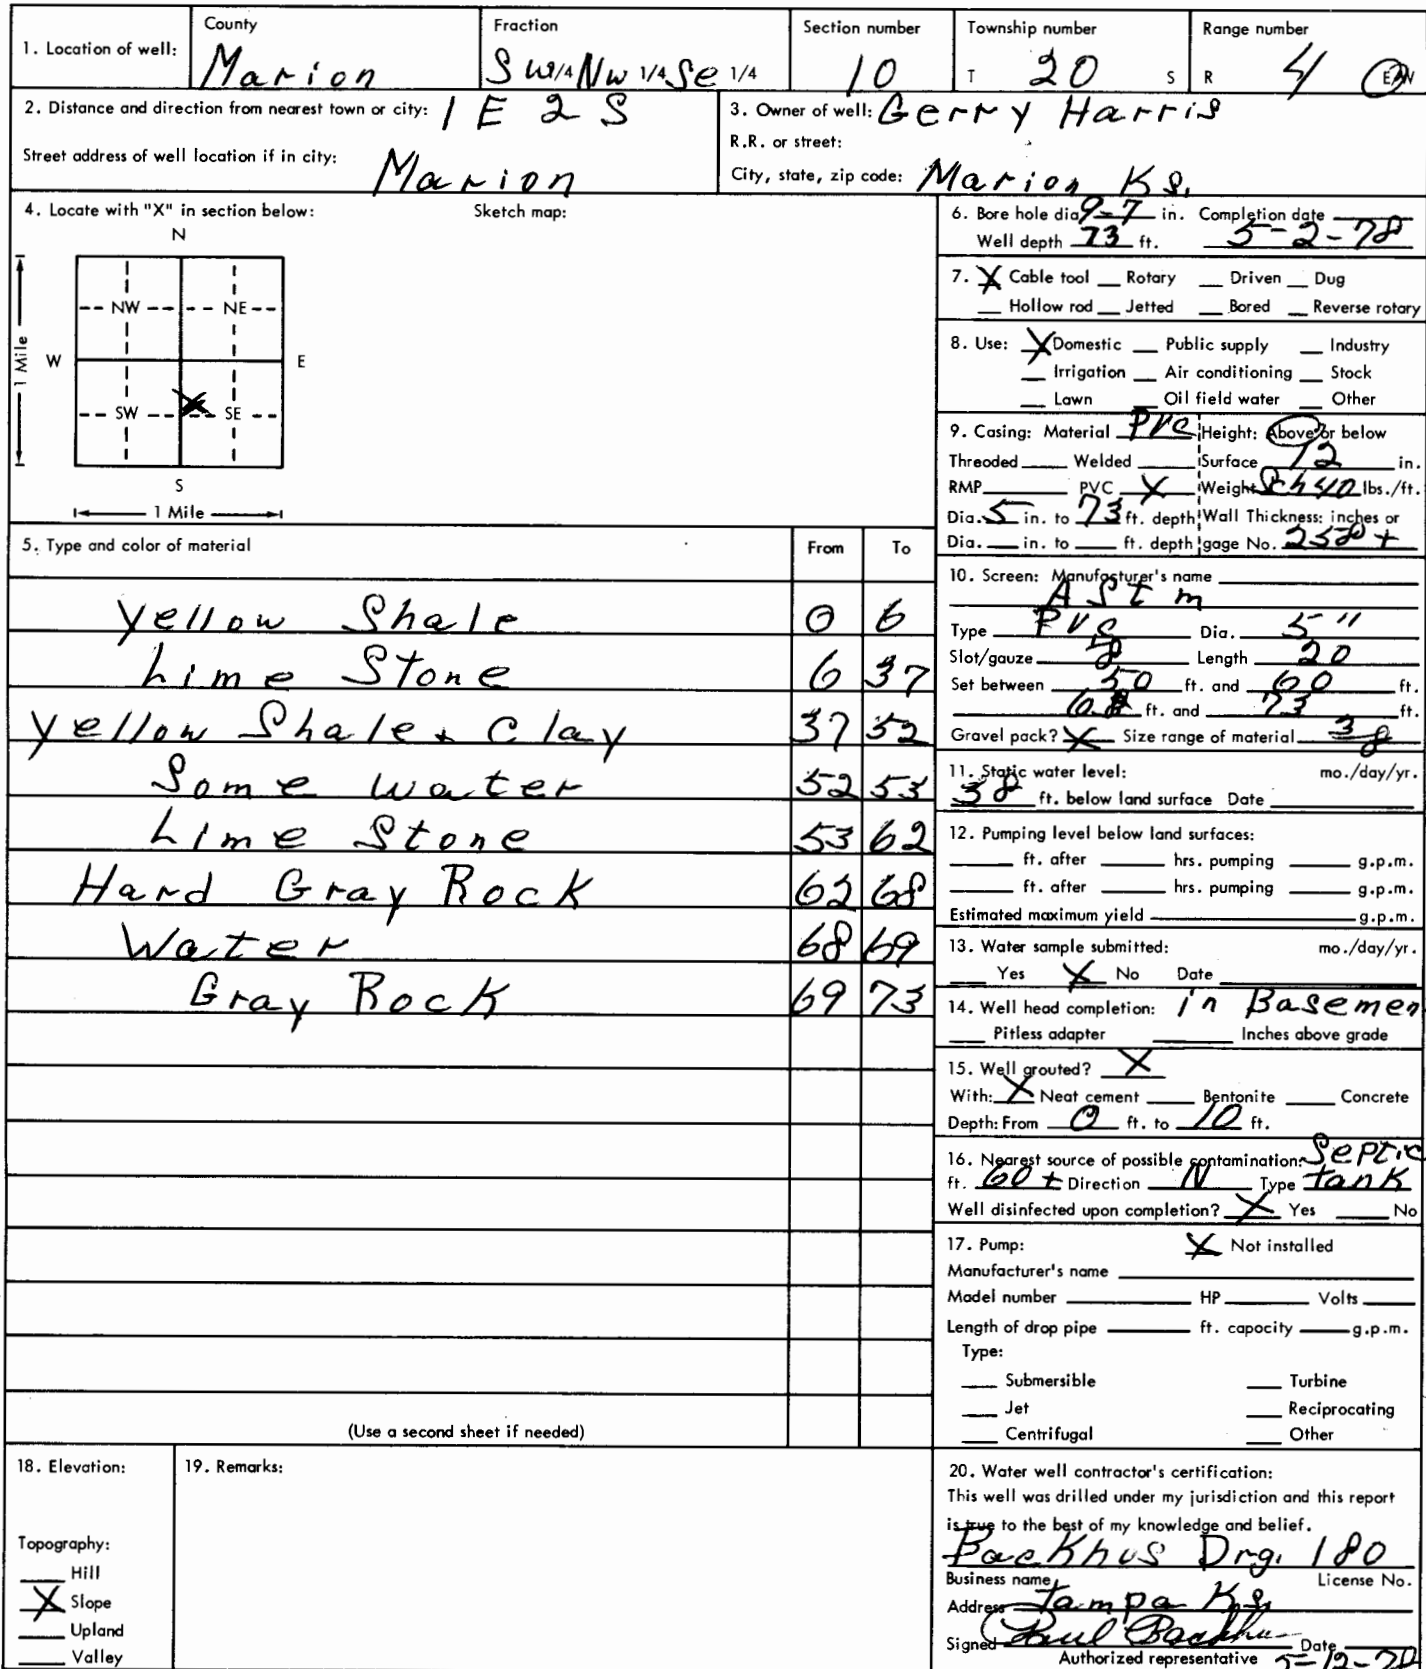 1. Location of well:
County
Marion
Fraction
Sw 1/4 Nw 1/4 Se 1/4
Section number
10
Township number
T 20 S
Range number
R 4 E/W
2. Distance and direction from nearest town or city: 1 E 2 S
Street address of well location if in city:
Marion
3. Owner of well: Gerry Harris
R.R. or street:
City, state, zip code: Marion Ks.
4. Locate with "X" in section below:
Sketch map:
N
NW NE
W E
1 Mile
SW X SE
S
1 Mile
5. Type and color of material From To
Yellow Shale 0 6
Lime Stone 6 37
Yellow Shale + Clay 37 52
Some Water 52 53
Lime Stone 53 62
Hard Gray Rock 62 68
Water 68 69
Gray Rock 69 73
(Use a second sheet if needed)
6. Bore hole dia 9-7 in. Completion date
Well depth 73 ft. 5-2-78
7. X Cable tool __ Rotary __ Driven __ Dug
__ Hollow rod __ Jetted __ Bored __ Reverse rotary
8. Use: X Domestic __ Public supply __ Industry
__ Irrigation __ Air conditioning __ Stock
__ Lawn __ Oil field water __ Other
9. Casing: Material PVC Height: Above or below
Threoded __ Welded __ Surface 12 in.
RMP __ PVC X Weight Sch 40 lbs./ft.
Dia. 5 in. to 73 ft. depth Wall Thickness: inches or
Dia. __ in. to __ ft. depth gage No. 258 +
10. Screen: Manufacturer's name
A S t m
Type PVC Dia. 5"
Slot/gauze 8 Length 20
Set between 50 ft. and 60 ft.
68 ft. and 73 ft.
Gravel pack? X Size range of material 3/8
11. Static water level: mo./day/yr.
38 ft. below land surface Date
12. Pumping level below land surfaces:
__ ft. after __ hrs. pumping __ g.p.m.
__ ft. after __ hrs. pumping __ g.p.m.
Estimated maximum yield __ g.p.m.
13. Water sample submitted: mo./day/yr.
__ Yes X No Date
14. Well head completion: in Basemen
__ Pitless adapter __ Inches above grade
15. Well grouted? X
With: X Neat cement __ Bentonite __ Concrete
Depth: From 0 ft. to 10 ft.
16. Nearest source of possible contamination: Septic
ft. 60 + Direction N Type tank
Well disinfected upon completion? X Yes __ No
17. Pump: X Not installed
Manufacturer's name
Model number __ HP __ Volts __
Length of drop pipe __ ft. capacity __ g.p.m.
Type:
__ Submersible __ Turbine
__ Jet __ Reciprocating
__ Centrifugal __ Other
18. Elevation:
Topography:
__ Hill
X Slope
__ Upland
__ Valley
19. Remarks:
20. Water well contractor's certification:
This well was drilled under my jurisdiction and this report
is true to the best of my knowledge and belief.
Backhus Drg. 180
Business name License No.
Address Tampa Ks.
Signed Paul Backhus Date
Authorized representative 5-12-78